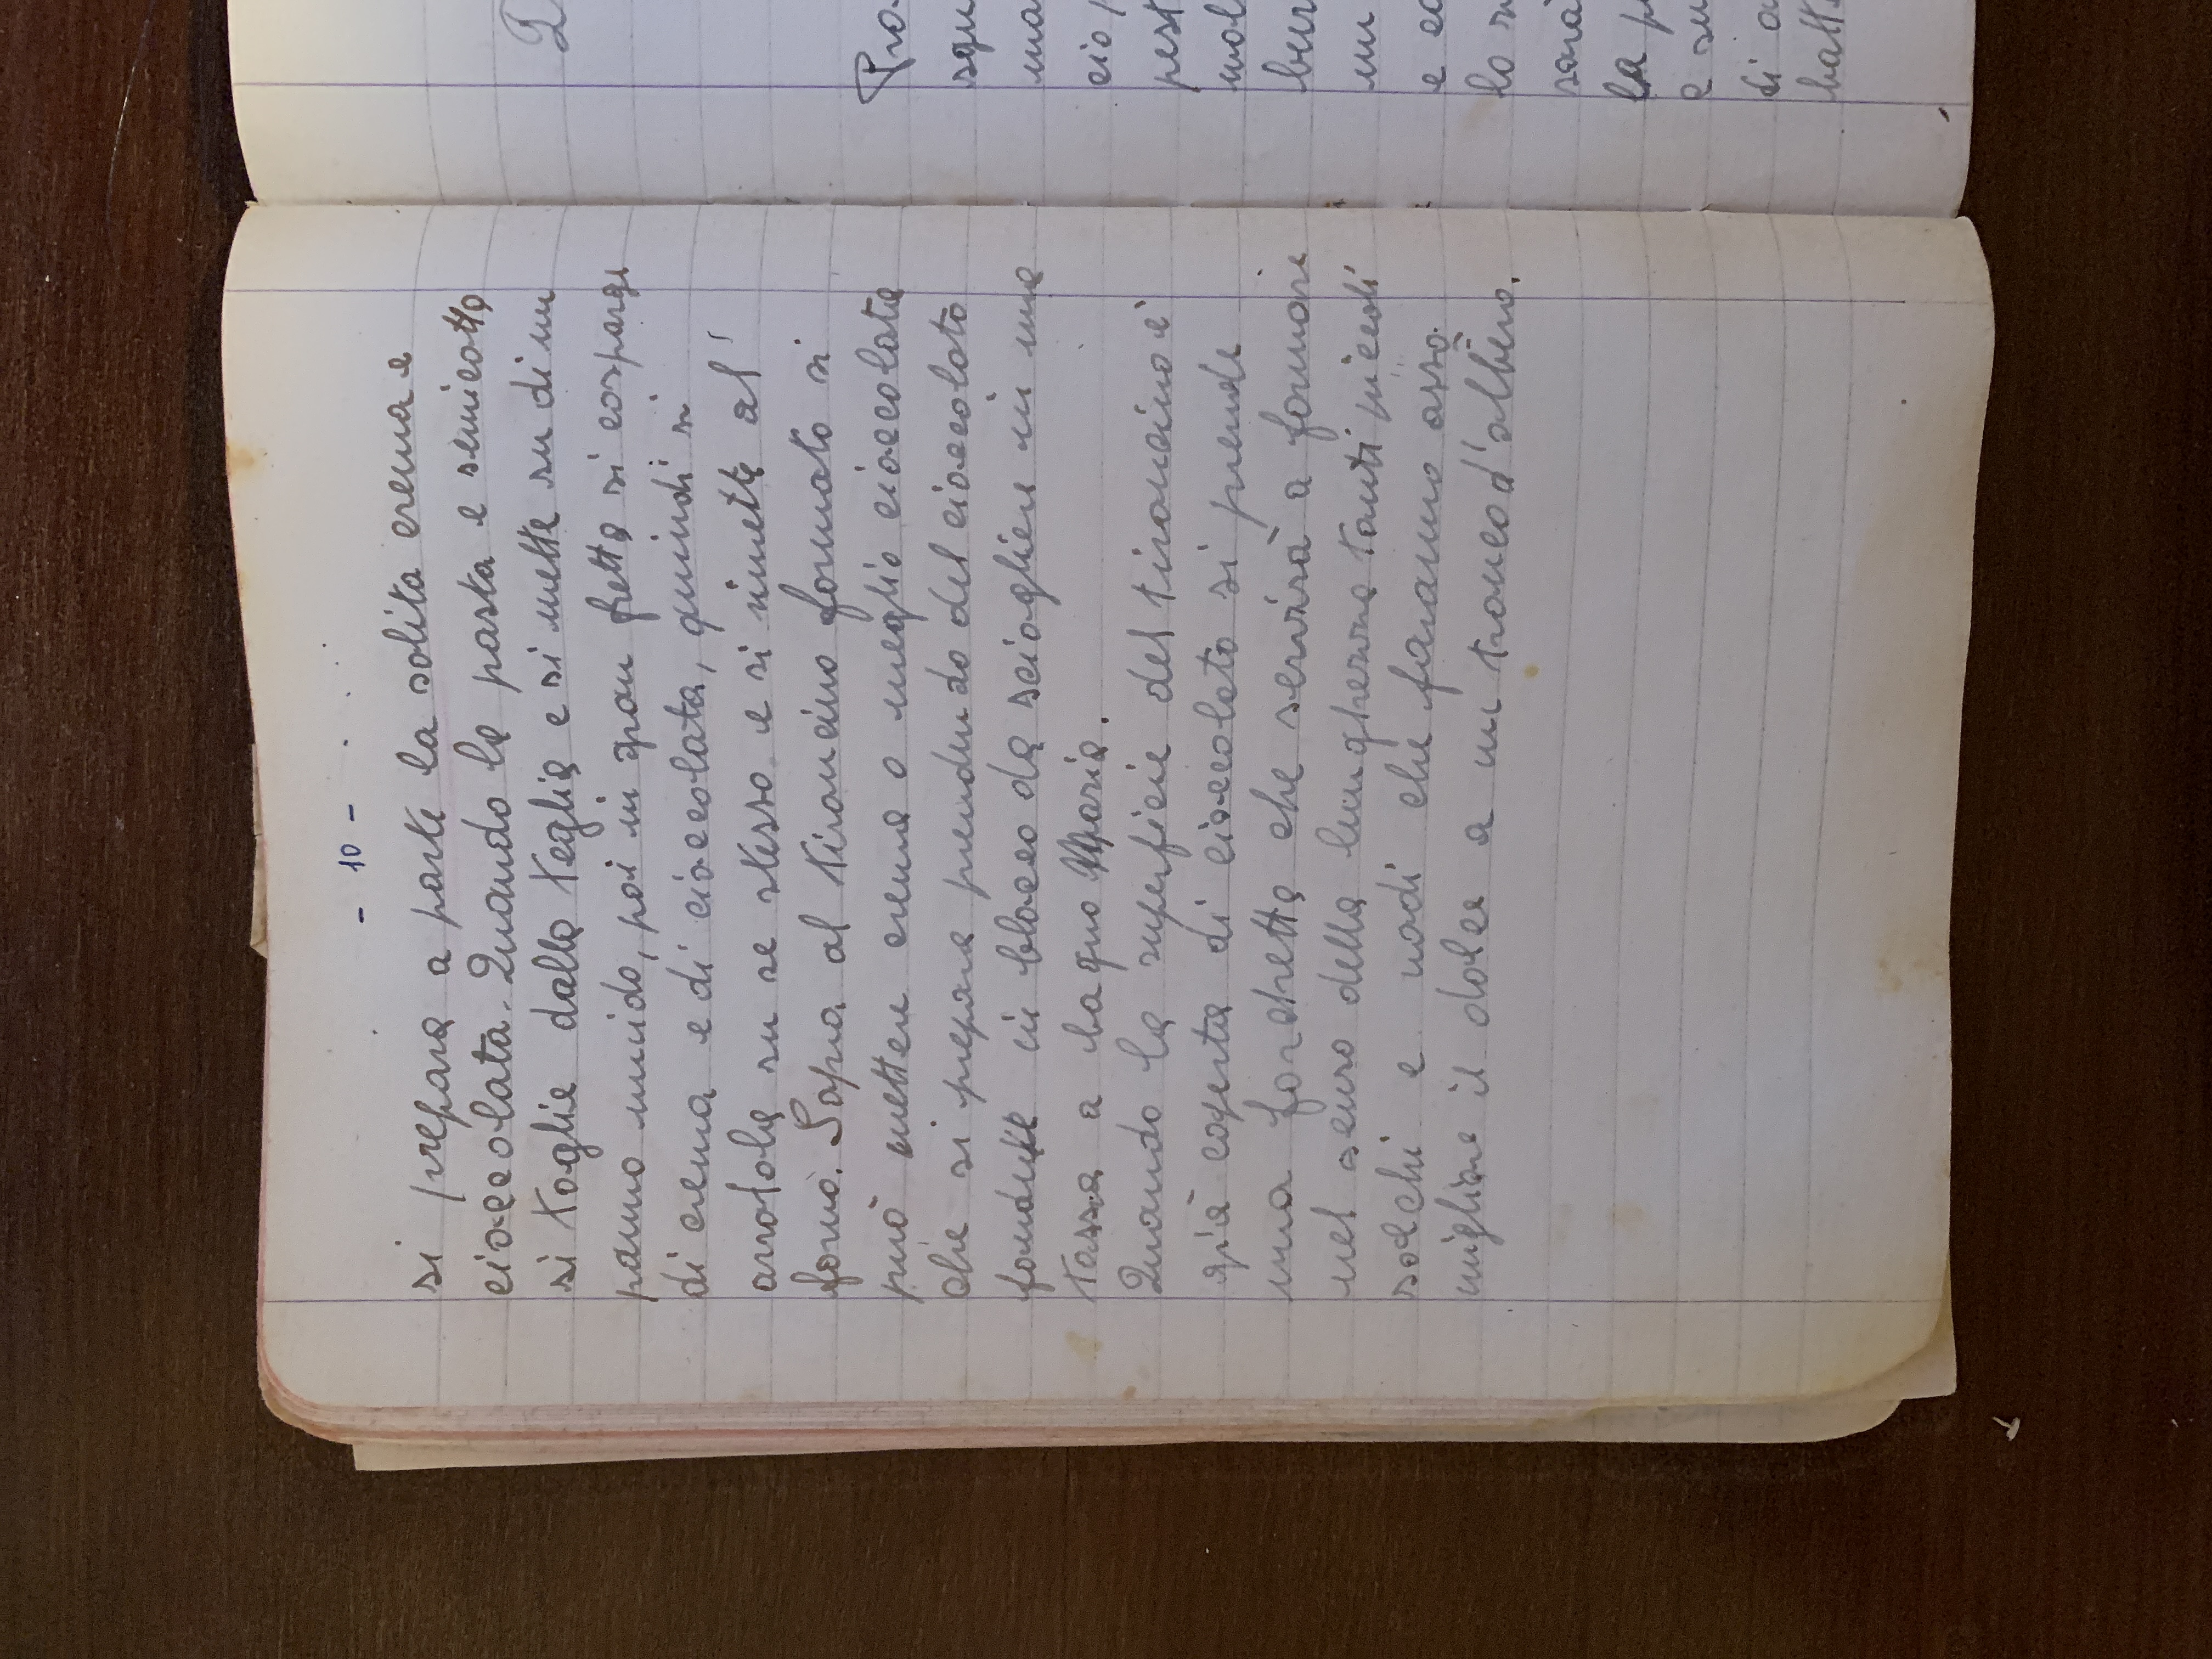 - 10 -
si prepara a parte la solita crema e
cioccolata. Quando la pasta e semicotta
si toglie dalla teglia e si mette su di un
panno umido, poi in gran fretta si cosparge
di crema e di cioccolata, quindi si
arrotola su se stesso e si rimette al
forno. Sopra al tironcino formato si
può mettere crema o meglio cioccolata
che si prepara prendendo del cioccolato
fondente in blocco da sciogliere in una
tazza a bagno Maria.
Quando la superficie del tironcino è
già coperta di cioccolato si prende
una forchetta che servirà a formare
nel senso della lunghezza tanti piccoli
solchi e nodi che faranno asso
migliare il dolce a un tronco d'albero.
Pro
squ
ma
cio
pest
mol
bur
un
e co
lo
sarà
la p
e su
di
batt